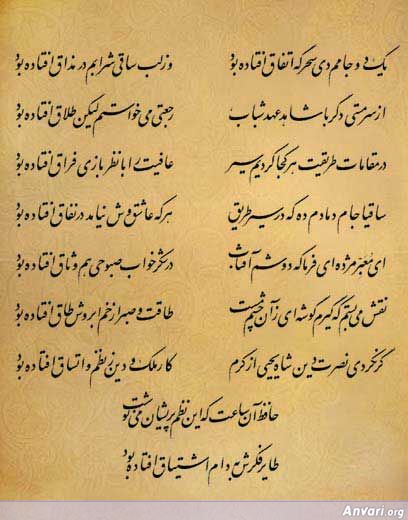 یک دو جامم دی سحرگه اتفاق افتاده بود وز لب ساقی شرابم در مذاق افتاده بود
از سر مستی دگر با شاهد عهد شباب رجعتی می خواستم لیکن طلاق افتاده بود
در مقامات طریقت هر کجا کردیم سیر عافیت را با نظر بازی فراق افتاده بود
ساقیا جام دمادم ده که در سیر طریق هر که عاشق وش نیامد در نفاق افتاده بود
ای معبر مژده ای فرما که دوشم آفتاب در شکر خواب صبوحی هم وثاق افتاده بود
نقش می بستم که گیرم گوشه ای زان چشم مست طاقت و صبر از خم ابروش طاق افتاده بود
گر نکردی نصرت دین شاه یحیی از کرم کار ملک و دین ز نظم و اتساق افتاده بود
حافظ آن ساعت که این نظم پریشان می نوشت
طایر فکرش به دام اشتیاق افتاده بود
Anvari.org